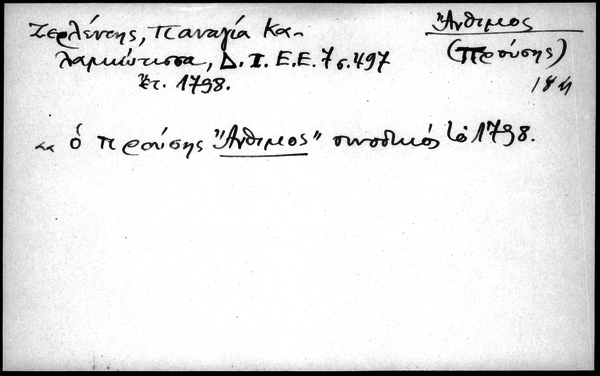 Ζερλέντης, Παναγία Κα-
λαμιώτισσα, Δ. Ι. Ε. Ε. 7 σ. 497
Ἔτ. 1798.
Ἄνθιμος
(Προύσης)
« ὁ Προύσης "Ἄνθιμος" συνοδικός τῷ 1798.